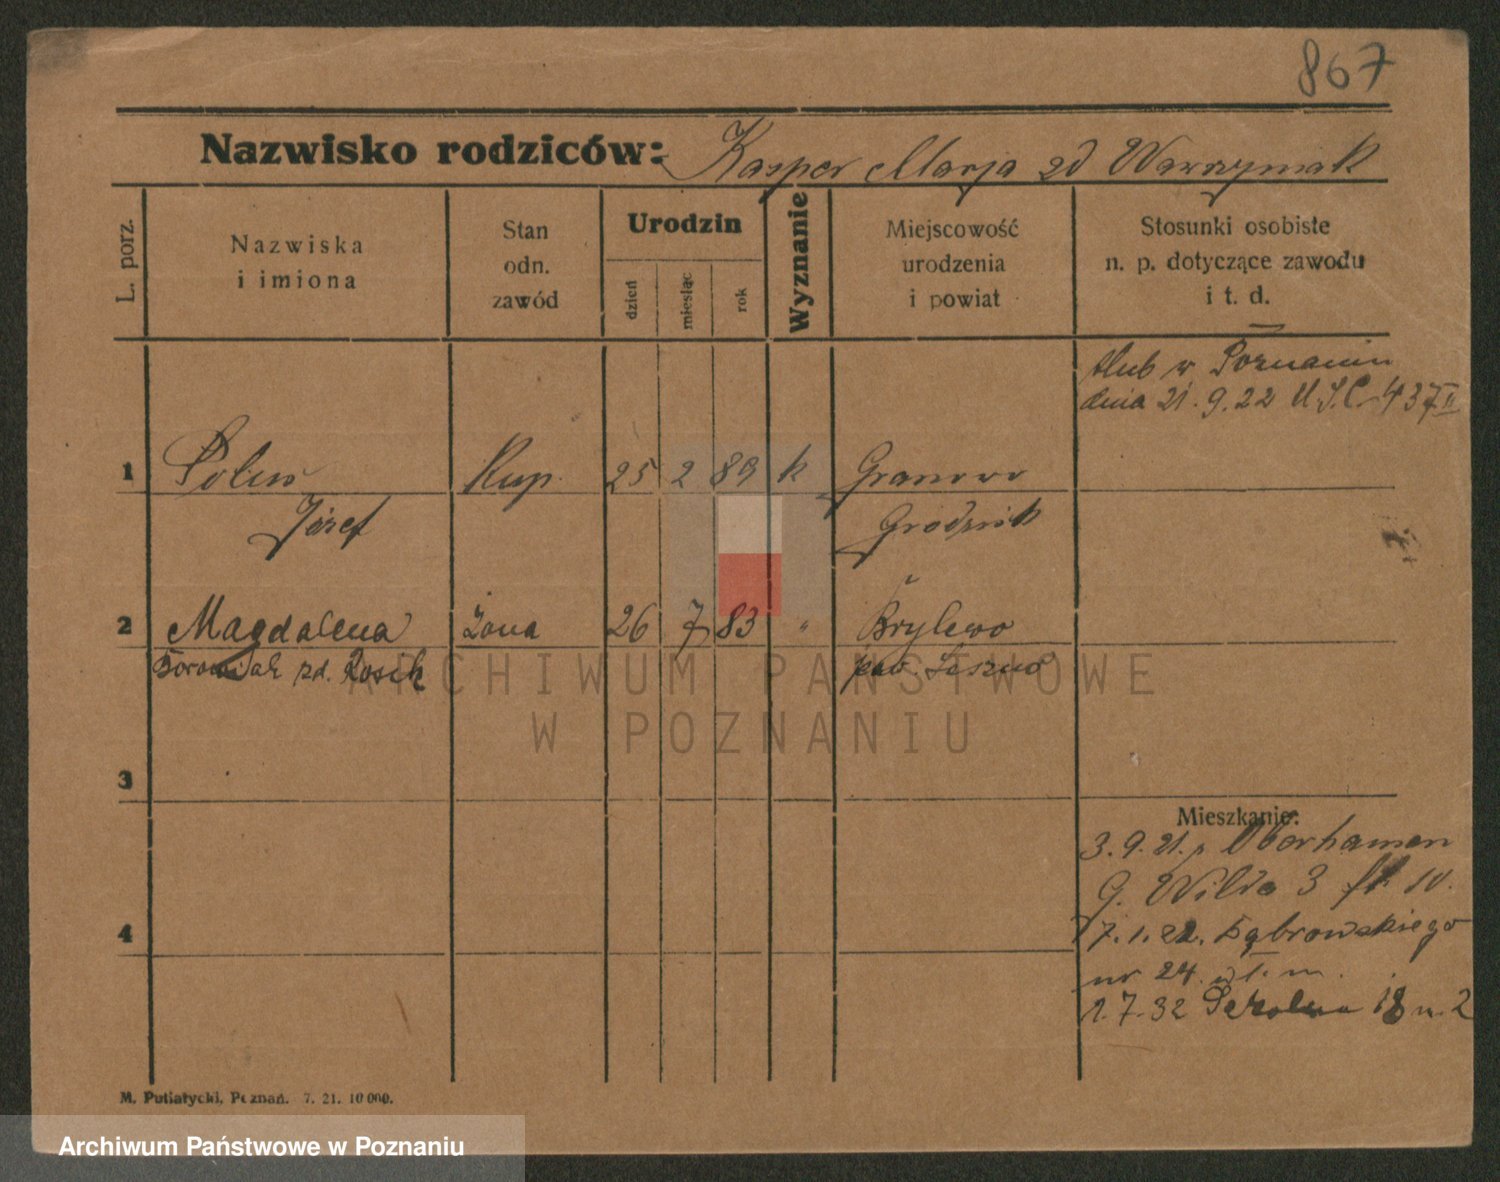 867
Nazwisko rodziców: Kasper Marja zd Wawrzyniak
L. porz.
Nazwiska
i imiona
Stan
odn.
zawód
Urodzin
dzień
miesiąc
rok
Wyznanie
Miejscowość
urodzenia
i powiat
Stosunki osobiste
n. p. dotyczące zawodu
i t. d.
ślub w Poznaniu
dnia 21.9.22 U.S.C. 437 II
1 Kup. 25 2 89 k Granowo
Józef Grodzisk
2 Magdalena żona 26 7 83 " Brylewo
zd. Rosik pow. Leszno
3
Mieszkanie:
3.9.21. p
G. Wilda 3 ptr. IV.
4
7.1.22. Dąbrowskiego
nr 24
1.7.32 18 m. 2
M. Putiatycki, Poznań. 7. 21. 10 000.
ARCHIWUM PAŃSTWOWE
W POZNANIU
Archiwum Państwowe w Poznaniu